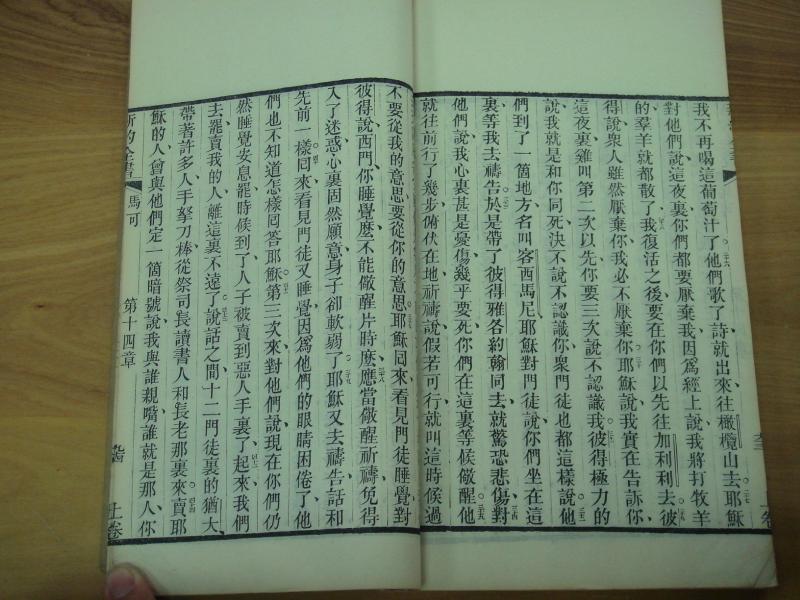 我不再喝這葡萄汁了他們歌了詩就出來往橄欖山去耶穌
對他們說這夜裏你們都要厭棄我因爲經上說我將打牧羊
的羣羊就都散了我復活之後要在你們以先往加利利去彼
得說衆人雖然厭棄你我必不厭棄你耶穌說我實在告訴你
這夜裏雞叫第二次以先你要三次說不認識我彼得極力的
說我就是和你同死決不說不認識你衆門徒也都這樣說他
們到了一箇地方名叫客西馬尼耶穌對門徒說你們坐在這
裏等我去禱告於是帶了彼得雅各約翰同去就驚恐悲傷對
他們說我心裏甚是憂傷幾乎要死你們在這裏等候儆醒他
就往前行了幾步俯伏在地祈禱說假若可行就叫這時候過
不要從我的意思要從你的意思耶穌囘來看見門徒睡覺對
彼得說西門你睡覺麽不能儆醒片時麽應當儆醒祈禱免得
入了迷惑心裏固然願意身子卻軟弱了耶穌又去禱告話和
先前一樣囘來看見門徒又睡覺因爲他們的眼睛困倦了他
們也不知道怎樣囘答耶穌第三次來對他們說現在你們仍
然睡覺安息罷時候到了人子被賣到惡人手裏了起來我們
去罷賣我的人離這裏不遠了說話之間十二門徒裏的猶大
帶著許多人手拏刀棒從祭司長讀書人和長老那裏來賣耶
穌的人曾與他們定一箇暗號說我與誰親嘴誰就是那人你
新約全書 馬可 第十四章 上卷